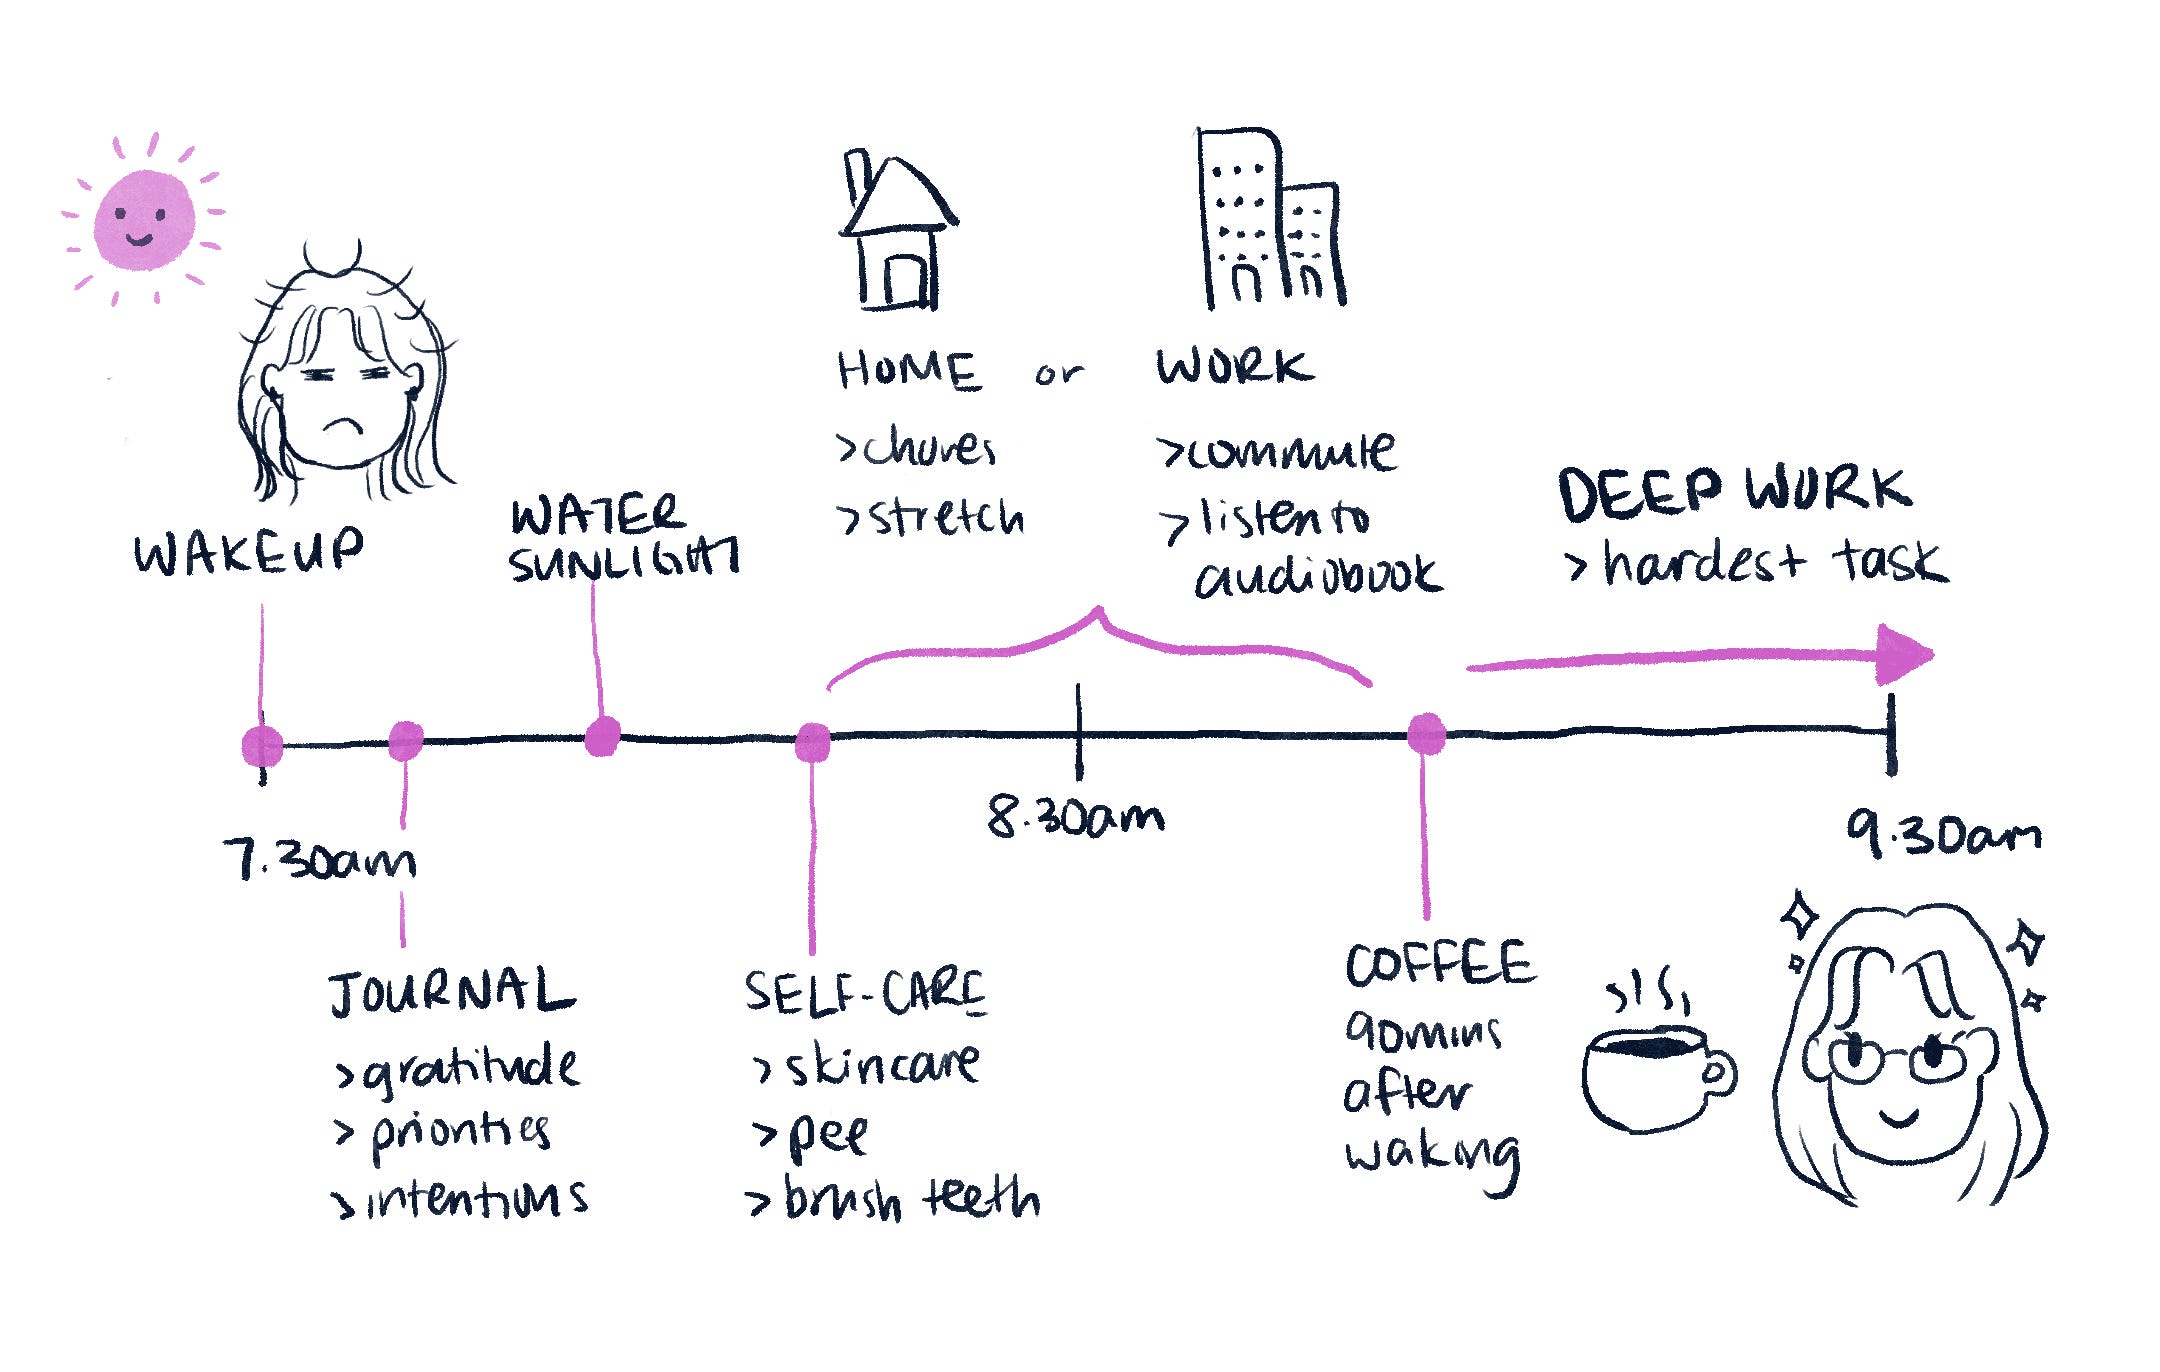 HOME or WORK
>chores
>stretch
>commute
>listen to
audiobook
WAKEUP
WATER
SUNLIGHT
DEEP WORK
>hardest task
7.30am
8.30am
9.30am
JOURNAL
>gratitude
>priorities
>intentions
SELF-CARE
>skincare
>pee
>brush teeth
COFFEE
90mins
after
waking